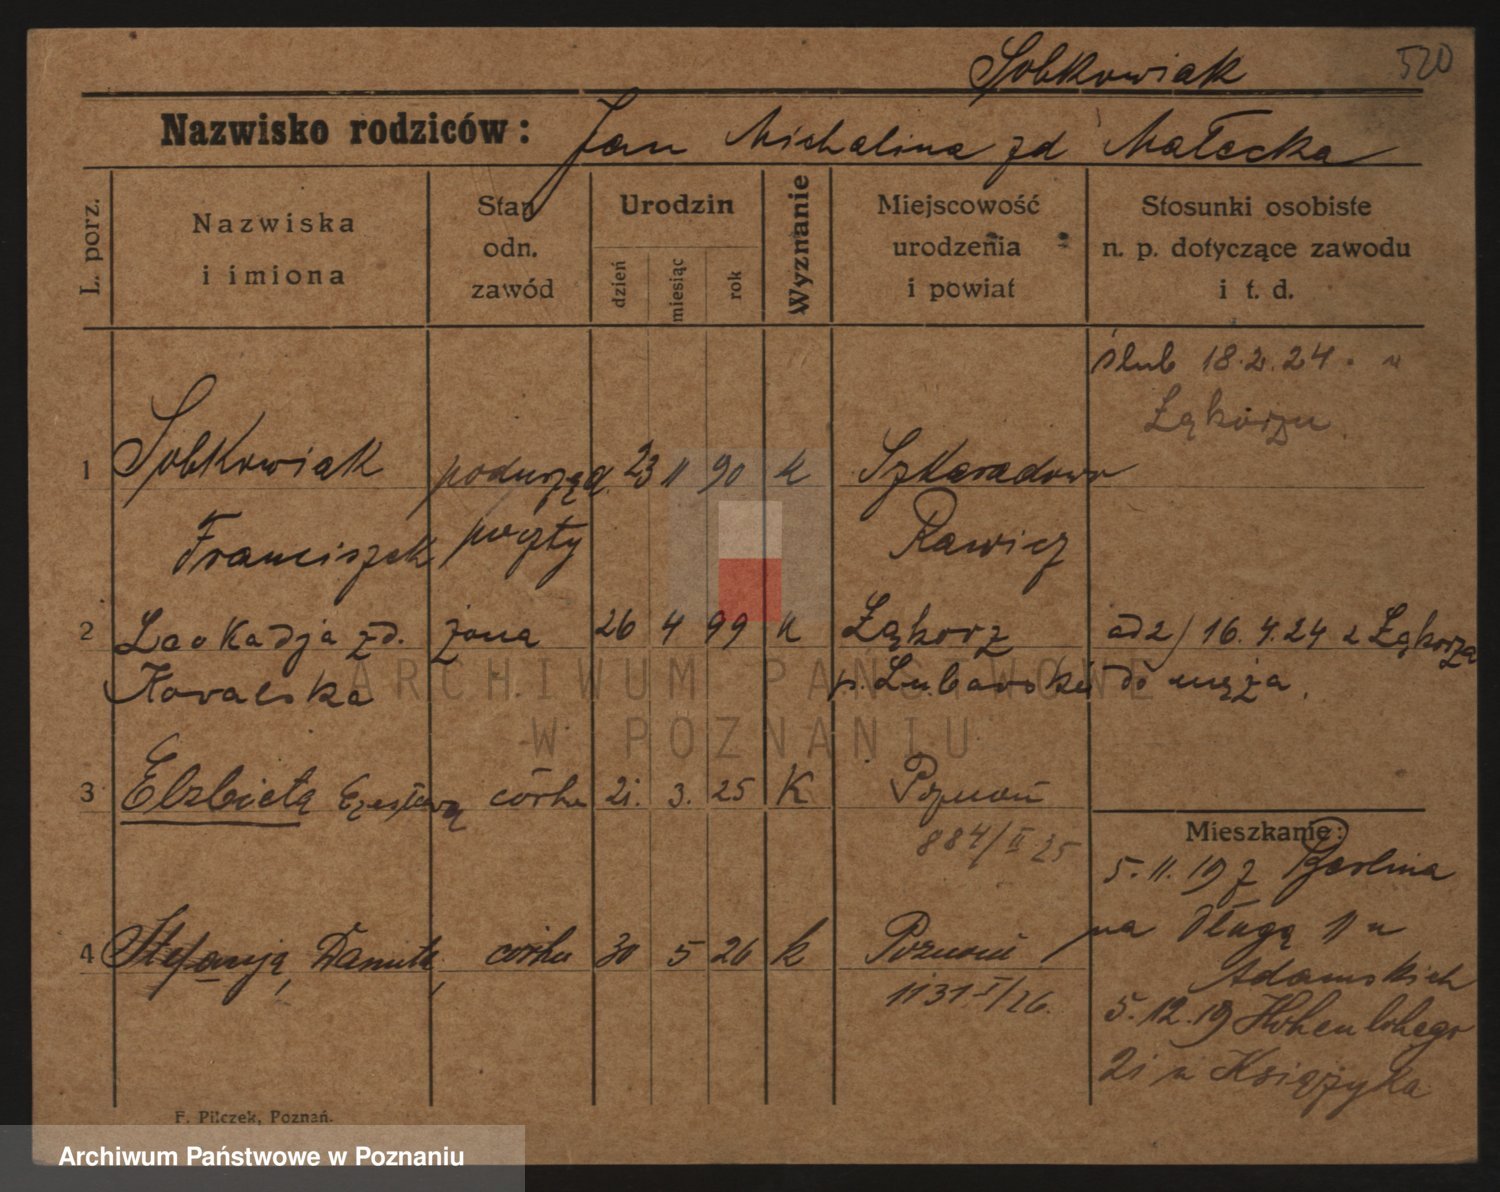 Sobkowiak
520
Nazwisko rodziców: Jan Michalina zd Małecka
L. porz.
Nazwiska
i imiona
Stan
odn.
zawód
Urodzin
dzień
miesiąc
rok
Wyznanie
Miejscowość
urodzenia
i powiat
Stosunki osobiste
n. p. dotyczące zawodu
i t. d.
ślub 18.2.24. w
Łąkorzu.
1 Sobkowiak podurzęd. 23 11 90 k Szkaradowo
Franciszek poczty Rawicz
2 Leokadja zd. żona 26 4 99 k Łąkorz ad 2) 16.4.24 z Łąkorza
Kowalska p. Lubawski do męża.
3 Elżbietą Czesławą córka 21. 3. 25 K Poznań
884/II 25
Mieszkanie:
5.11.19 z Berlina
4 Stefanją, Danutą, córka 30 5 26 k Poznań
1131 I/26.
na Długą 11 u
Adamskich
5.12.19 Hohenlohego
21 u Księżyka
F. Pilczek, Poznań.
ARCHIWUM PAŃSTWOWE
W POZNANIU
Archiwum Państwowe w Poznaniu